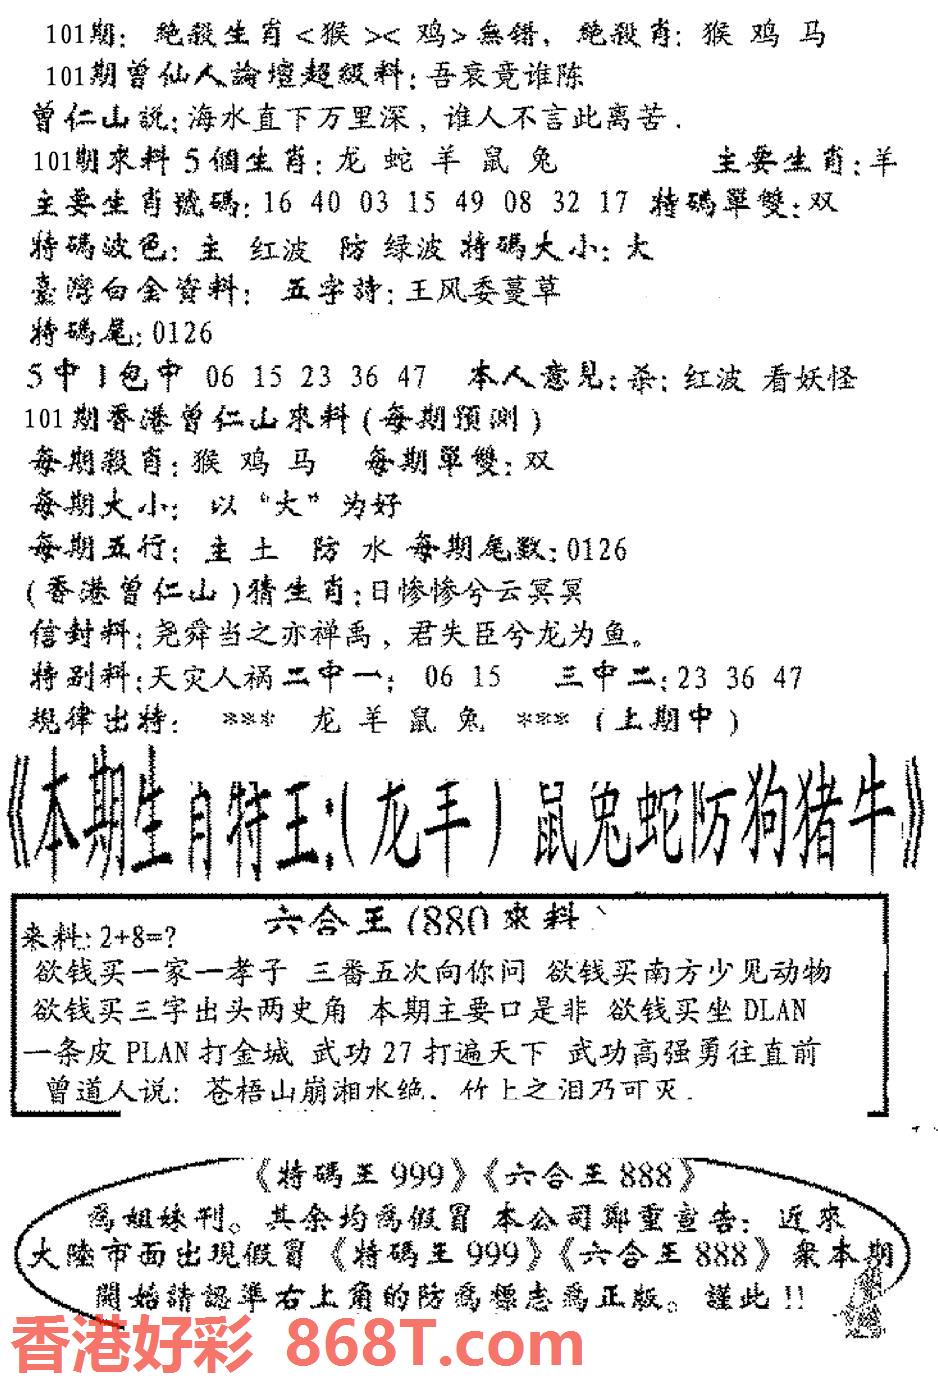 101期: 絶殺生肖<猴><鸡>無错, 絶殺肖: 猴 鸡 马
101期曾仙人論壇超級料:吾衰竟谁陈
曾仁山説:海水直下万里深, 谁人不言此离苦.
101期來料 5個生肖: 龙 蛇 羊 鼠 兔 主要生肖:羊
主要生肖號碼:16 40 03 15 49 08 32 17 特碼單雙:双
特碼波色: 主 红波 防 绿波 特碼大小: 大
臺灣白金資料: 五字詩:王风委蔓草
特碼尾:0126
5中1包中 06 15 23 36 47 本人意見:杀: 红波 看妖怪
101期香港曾仁山來料(每期預測)
每期殺肖:猴 鸡 马 每期單雙:双
每期大小: 以“大”为好
每期五行: 主 土 防 水 每期尾数:0126
(香港曾仁山)猜生肖:日惨惨兮云冥冥
信封料:尧舜当之亦禅禹, 君失臣兮龙为鱼。
特别料:天灾人祸二中一: 06 15 三中二:23 36 47
規律出特: *** 龙 羊 鼠 兔 *** (上期中)
《本期生肖特王:(龙羊)鼠兔蛇防狗猪牛》
六合王(880來料)
来料:2+8=?
欲钱买一家一孝子 三番五次向你问 欲钱买南方少见动物
欲钱买三字出头两史角 本期主要口是非 欲钱买坐DLAN
一条皮PLAN打金城 武功27打遍天下 武功高强勇往直前
曾道人说: 苍梧山崩湘水绝. 竹上之泪乃可灭.
《特碼王999》《六合王888》
為姐妹刊。其余均為假冒 本公司鄭重宣告: 近來
大陸市面出現假冒《特碼王999》《六合王888》衆本期
開始請認準右上角的防為標志為正版。謹此!!
香港好彩 868T.com